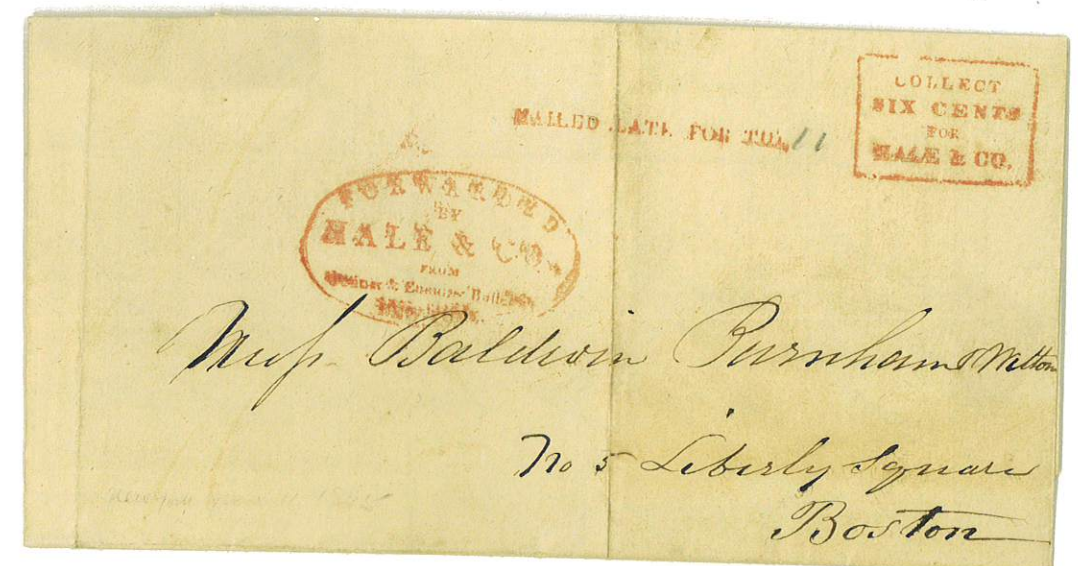 COLLECT
SIX CENTS
FOR
HALE & CO.
MAILED LATE FOR THE 11
FORWARDED
BY
HALE & CO.
FROM
Courier & Enquirer Building
Mess Baldwin Burnham & Melton
No 5 Liberty Square
Boston